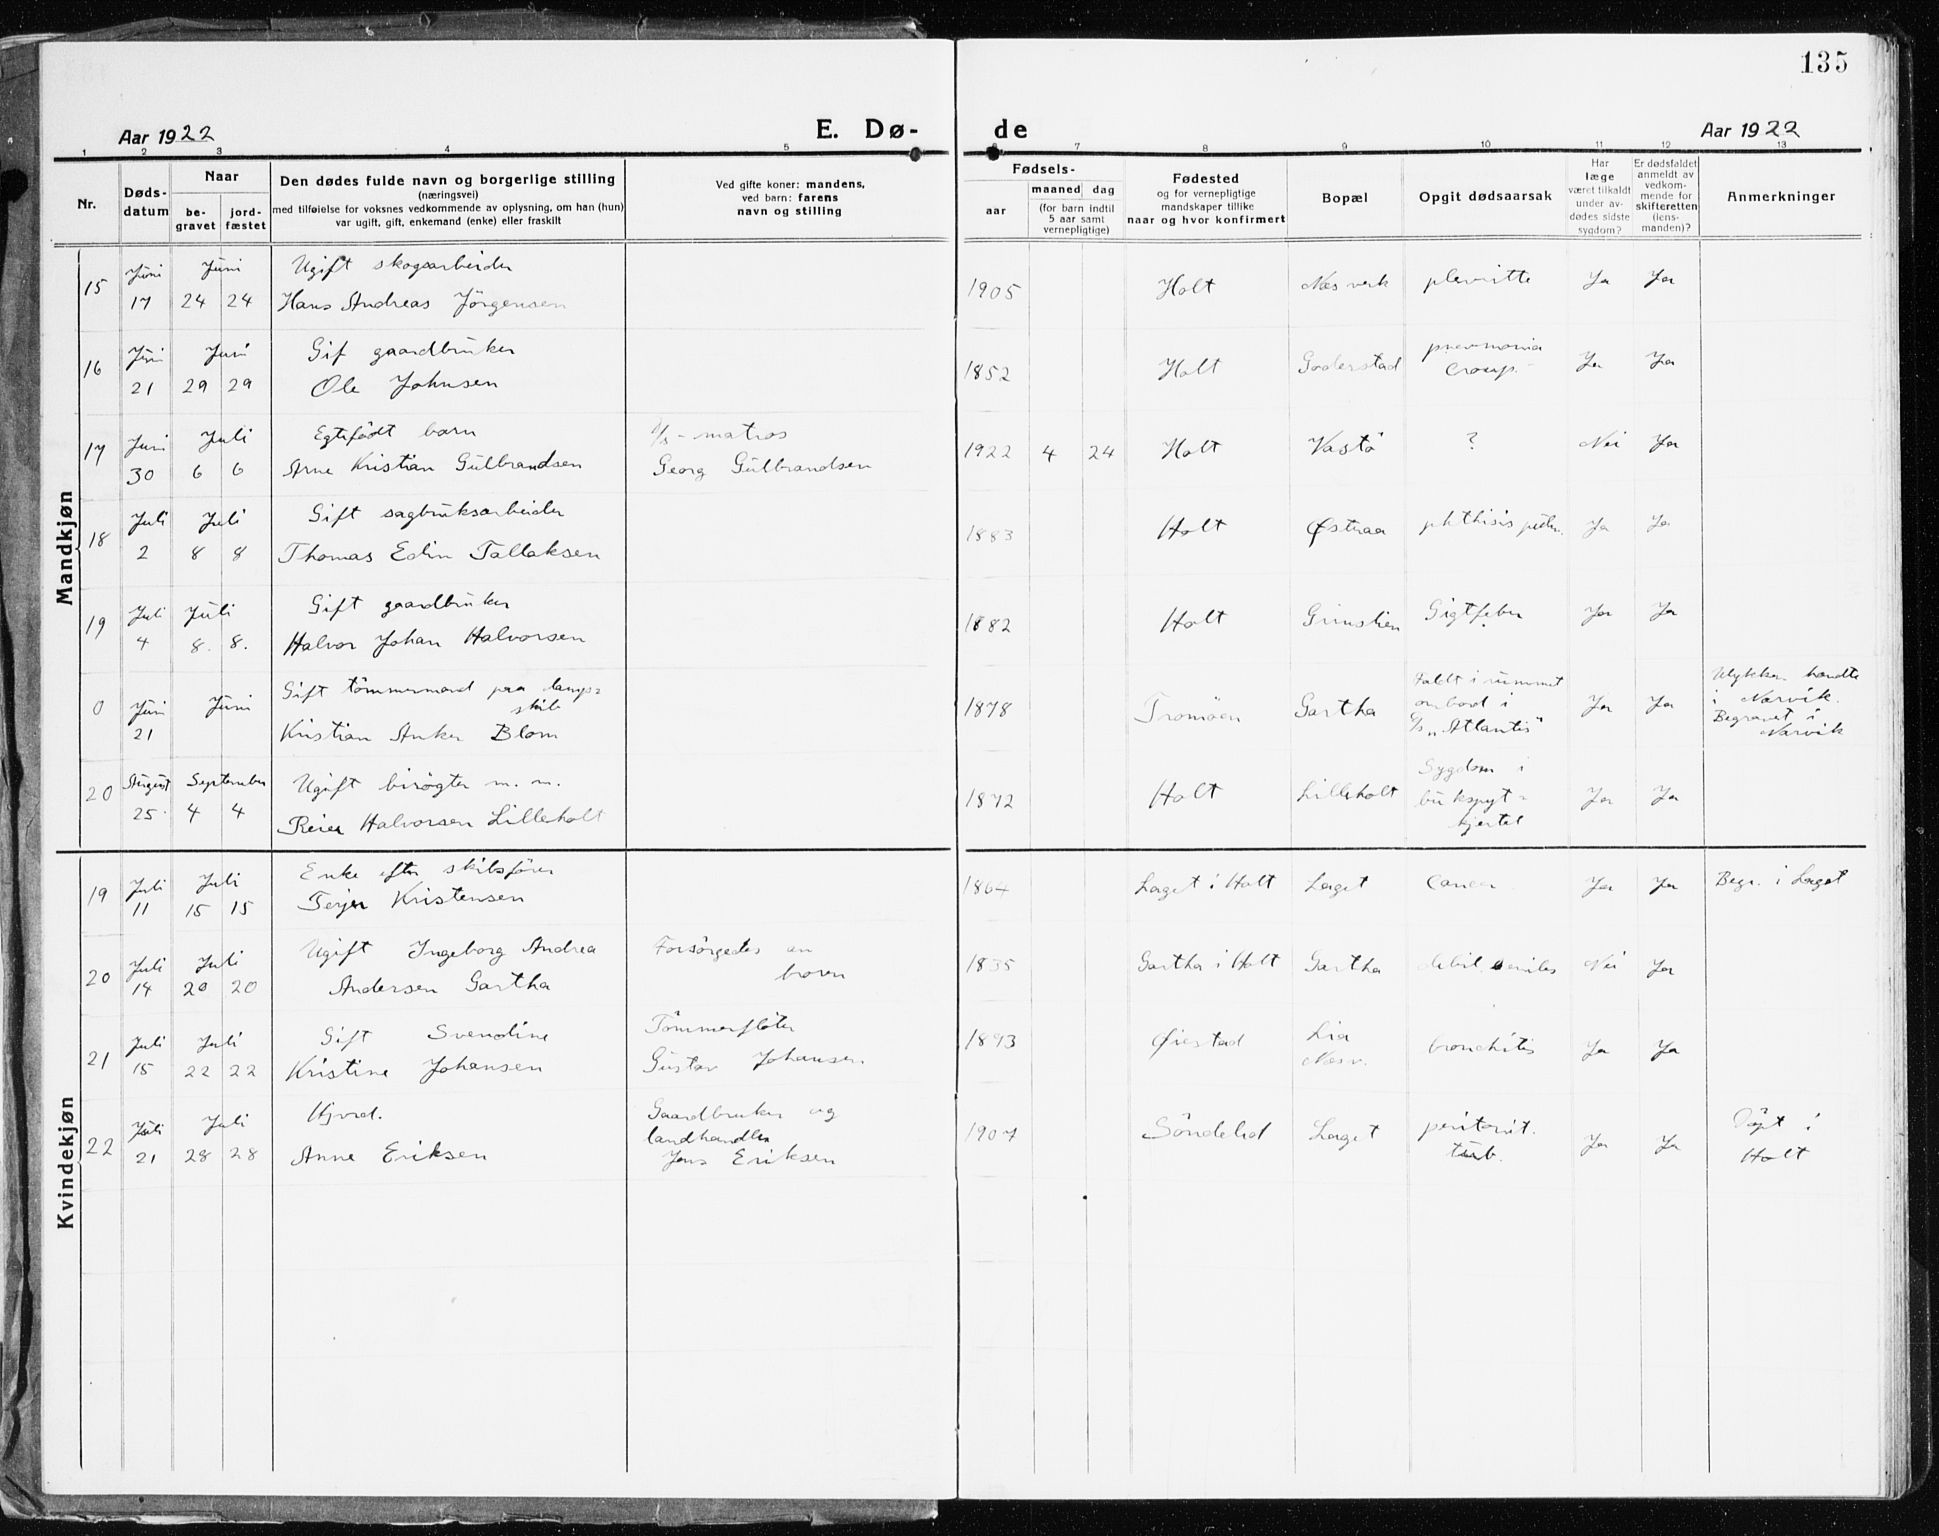 135
Aar 1922
E. Dø-
de
Aar 1922
1 2 3 4 5 6 7 8 9 10 11 12 13
Nr.
Døds-
datum
Naar
be-
gravet
jord-
fæstet
Den dødes fulde navn og borgerlige stilling
(næringsvei)
med tilføielse for voksnes vedkommende av oplysning, om han (hun)
var ugift, gift, enkemand (enke) eller fraskilt
Ved gifte koner: mandens,
ved barn: farens
navn og stilling
Fødsels-
aar
maaned dag
(for barn indtil
5 aar samt
vernepligtige)
Fødested
og for vernepligtige
mandskaper tillike
naar og hvor konfirmert
Bopæl
Opgit dødsaarsak
Har
læge
været tilkaldt
under av-
dødes sidste
sygdom?
Er dødsfaldet
anmeldt av
vedkom-
mende for
skifteretten
(lens-
manden)?
Anmerkninger
Mandkjøn
15 Juni Juni Ugift skogsarbeider
17 24 24 Hans Andreas Jörgensen
1905 Holt Næs verk plevritte Ja Ja
16 Juni Juni Gif gaardbruker
21 29 29 Ole Johnsen
1852 Holt Goderstad pnevmonia Ja Ja
croup.
17 Juni Juli Egtefödt barn s/s - matros
30 6 6 Arne Kristian Gulbrandsen Georg Gulbrandsen
1922 4 24 Holt Vastö ? Nei Ja
18 Juli Juli Gift sagbruksarbeider
2 8 8 Thomas Edin Tallaksen
1883 Holt Østraa phthisis pulm. Ja Ja
19 Juli Juli Gift gaardbruker
4 8. 8. Halvor Johan Halvorsen
1882 Holt Grimstien Gigtfeber Ja Ja
0 Juni Juni Gift tömmermand paa damp=
skib
21 Kristian Anker Blom
1878 Tromöen Gartha Faldt i rummet Ja Ja Ulykken hændte
ombord i i Narvik.
S/s „Atlantis" Begravet i
Narvik
20 August September Ugift birögter m. m.
25. 4 4 Reier Halvorsen Lilleholt
1872 Holt Lilleholt Sygdom i Ja Ja
bukspyt=
kjertel
Kvindekjøn
19 Juli Juli Enke efter skibsförer
11 15 15 Terjer Kristensen
1864 Laget i Holt Laget Cancer Ja Ja Begr. i Laget
20 Juli Juli Ugift Ingeborg Andrea Forsörgedes av
14 20 20 Andersen Gartha boren
1835 Gartha i Holt Gartha debil. senilis Nei Ja
21 Juli Juli Gift Svendine Tömmerflöter
15 22 22 Kristine Johansen Gustav Johansen
1893 Øiestad Lia bronchitis Ja Ja
Næsv.
22 Juli Juli Hjvrd. Gaardbruker og
landhandler
21 28 28 Anne Eriksen Jens Eriksen
1907 Söndeled Laget peritonit. Ja Ja Döpt i
tub. Holt